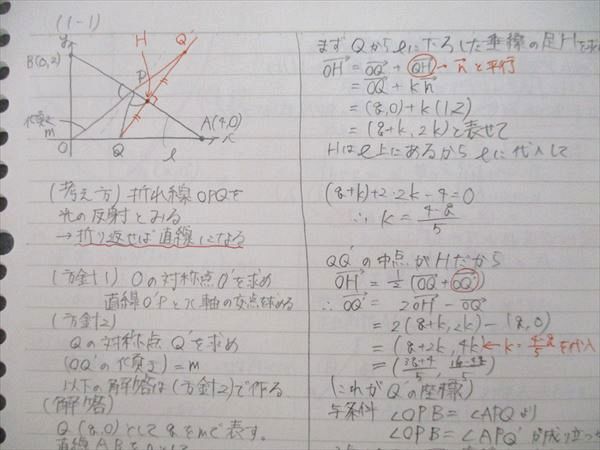 (1-1)
y
H
Q'
B(0,2)
P
傾き
m
O
Q
l
A(4,0)
x
(考え方) 折れ線OPQを
光の反射とみる
→ 折り返せば直線になる
(方針1) Oの対称点O'を求め
直線O'Pとx軸の交点を求める
(方針2)
Qの対称点Q'を求め
(OQ'の傾き) = m
以下の解答は(方針2)で作る
(解答)
Q(q,0)としてqをmで表す。
直線ABを
まずQからlに下ろした垂線の足Hを求
OH = OQ + QH → nと平行
= OQ + kn
= (q,0)+k(1,2)
= (q+k, 2k)と表せて
Hはl上にあるからlに代入して
(q+k)+2・2k-4=0
∴ k = (4-q)/5
QQ'の中点がHだから
OH = 1/2 (OQ + OQ')
∴ OQ' = 2OH - OQ
= 2(q+k, 2k) - (q,0)
= (q+2k, 4k) ← k = (4-q)/5 を代入
= ((3q+8)/5, (16-4q)/5)
(これがQ'の座標)
与条件 ∠OPB = ∠APQ より
∠OPB = ∠APQ' が成り立つ